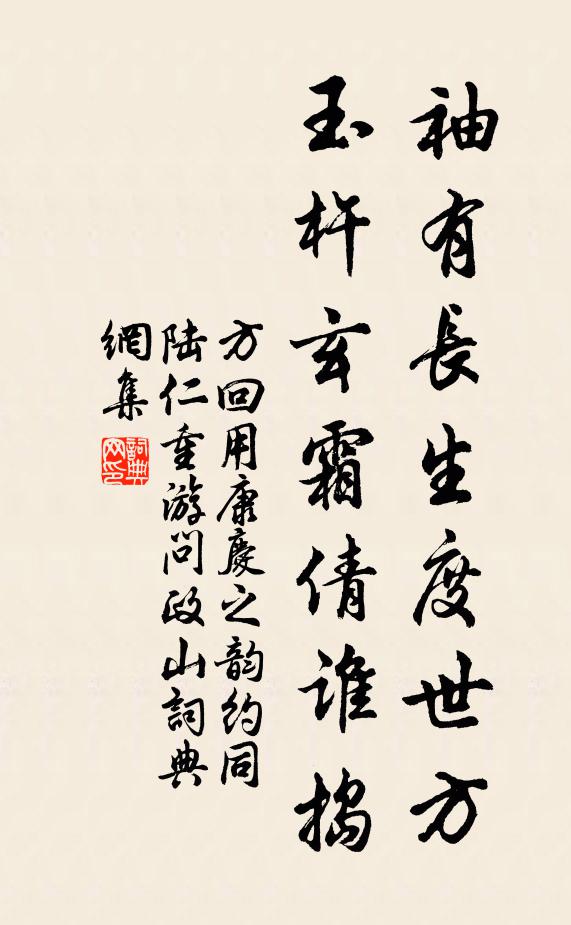 袖有長生度世方
玉杵玄霜倩誰搗
方回用康慶之韵約同
陆仁重游問政山詞典
網集
詞典網印